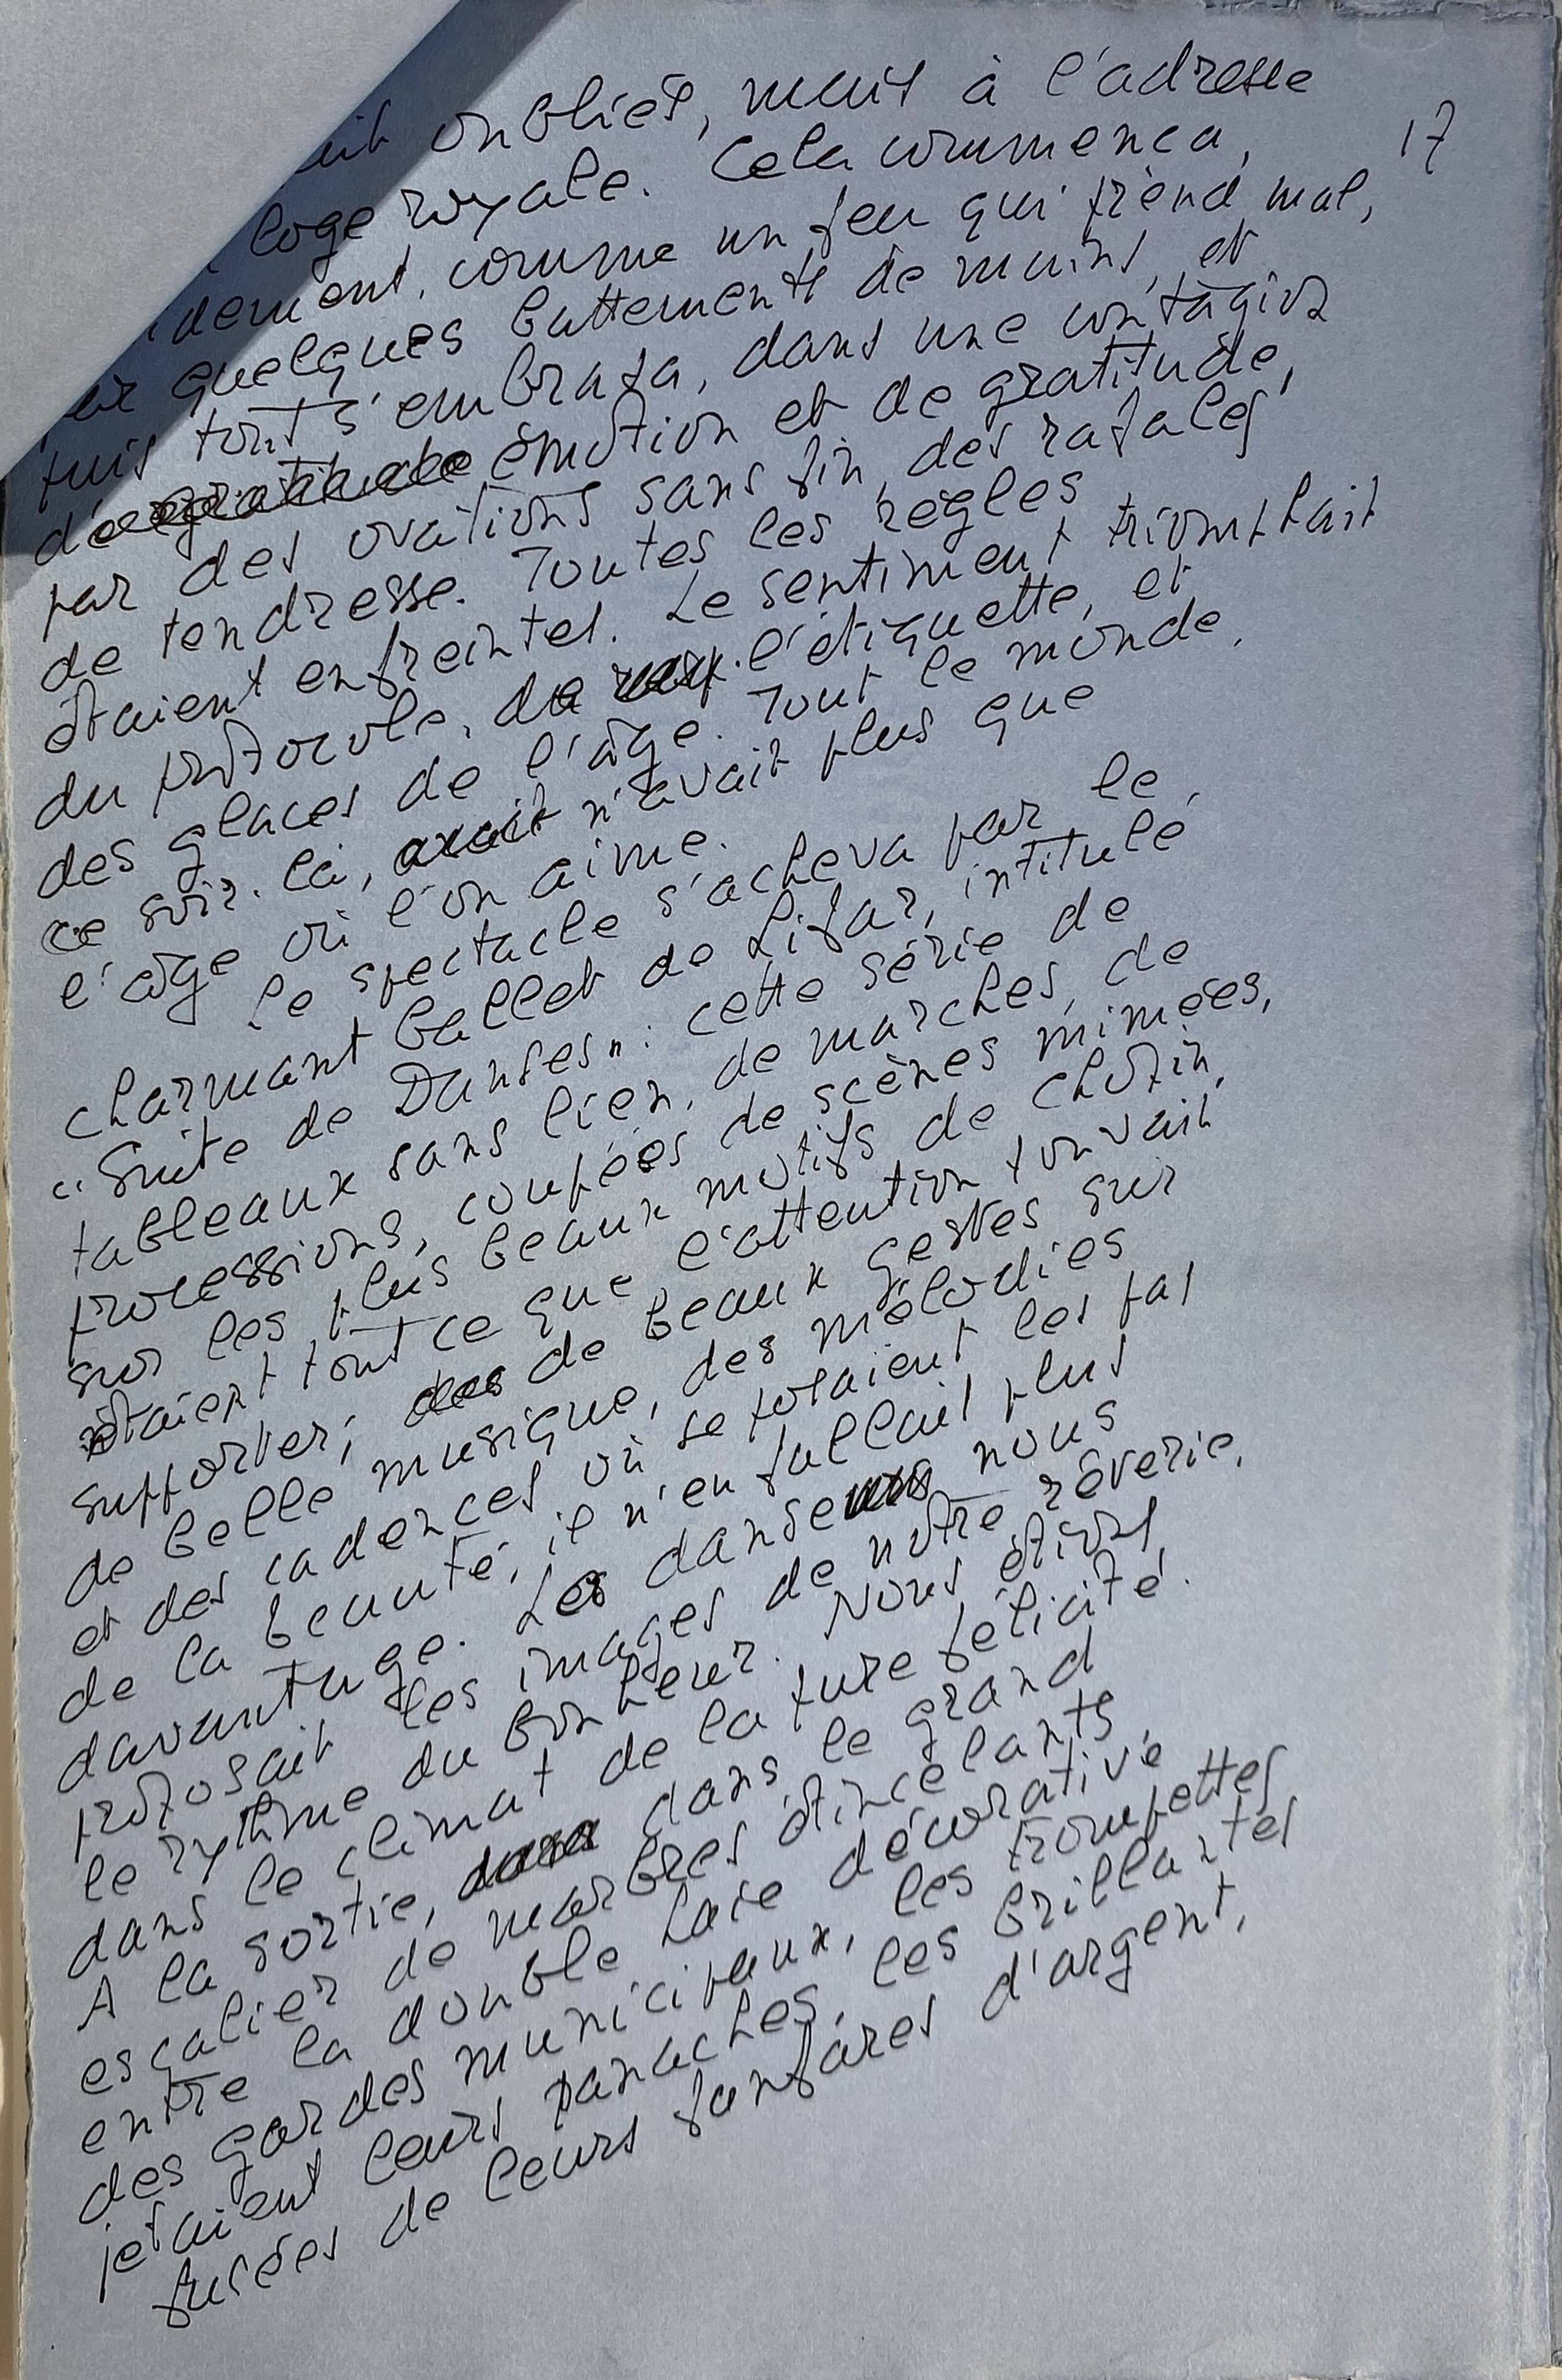 oubliés, mais à l'adresse
17
loge royale. Cela commença,
comme un feu qui prend mal,
par quelques battements de mains, et
puis tout s'embrasa, dans une contagion
d'émotion et de gratitude,
par des ovations sans fin, des rafales
de tendresse. Toutes les règles
étaient enfreintes. Le sentiment triomphait
du protocole, de l'étiquette, et
des glaces de l'âge. Tout le monde,
ce soir-là, n'avait plus que
l'âge où l'on aime.
Le spectacle s'acheva par le
charmant ballet de Lifar, intitulé
"Suite de Danses": cette série de
tableaux sans lien, de marches, de
processions, coupées de scènes mimées,
sur les plus beaux motifs de Chopin,
étaient tout ce que l'attention pouvait
supporter; de beaux gestes sur
de belle musique, des mélodies
et des cadences où se posaient les pas
de la beauté; il n'en fallait plus
davantage. Les danseurs nous
proposait les images de notre rêverie,
le rythme du bonheur. Nous étions
dans le climat de la pure félicité.
A la sortie, dans le grand
escalier de marbres étincelants,
entre la double haie décorative
des gardes municipaux, les trompettes
jetaient leurs panaches, les brillantes
fusées de leurs fanfares d'argent,